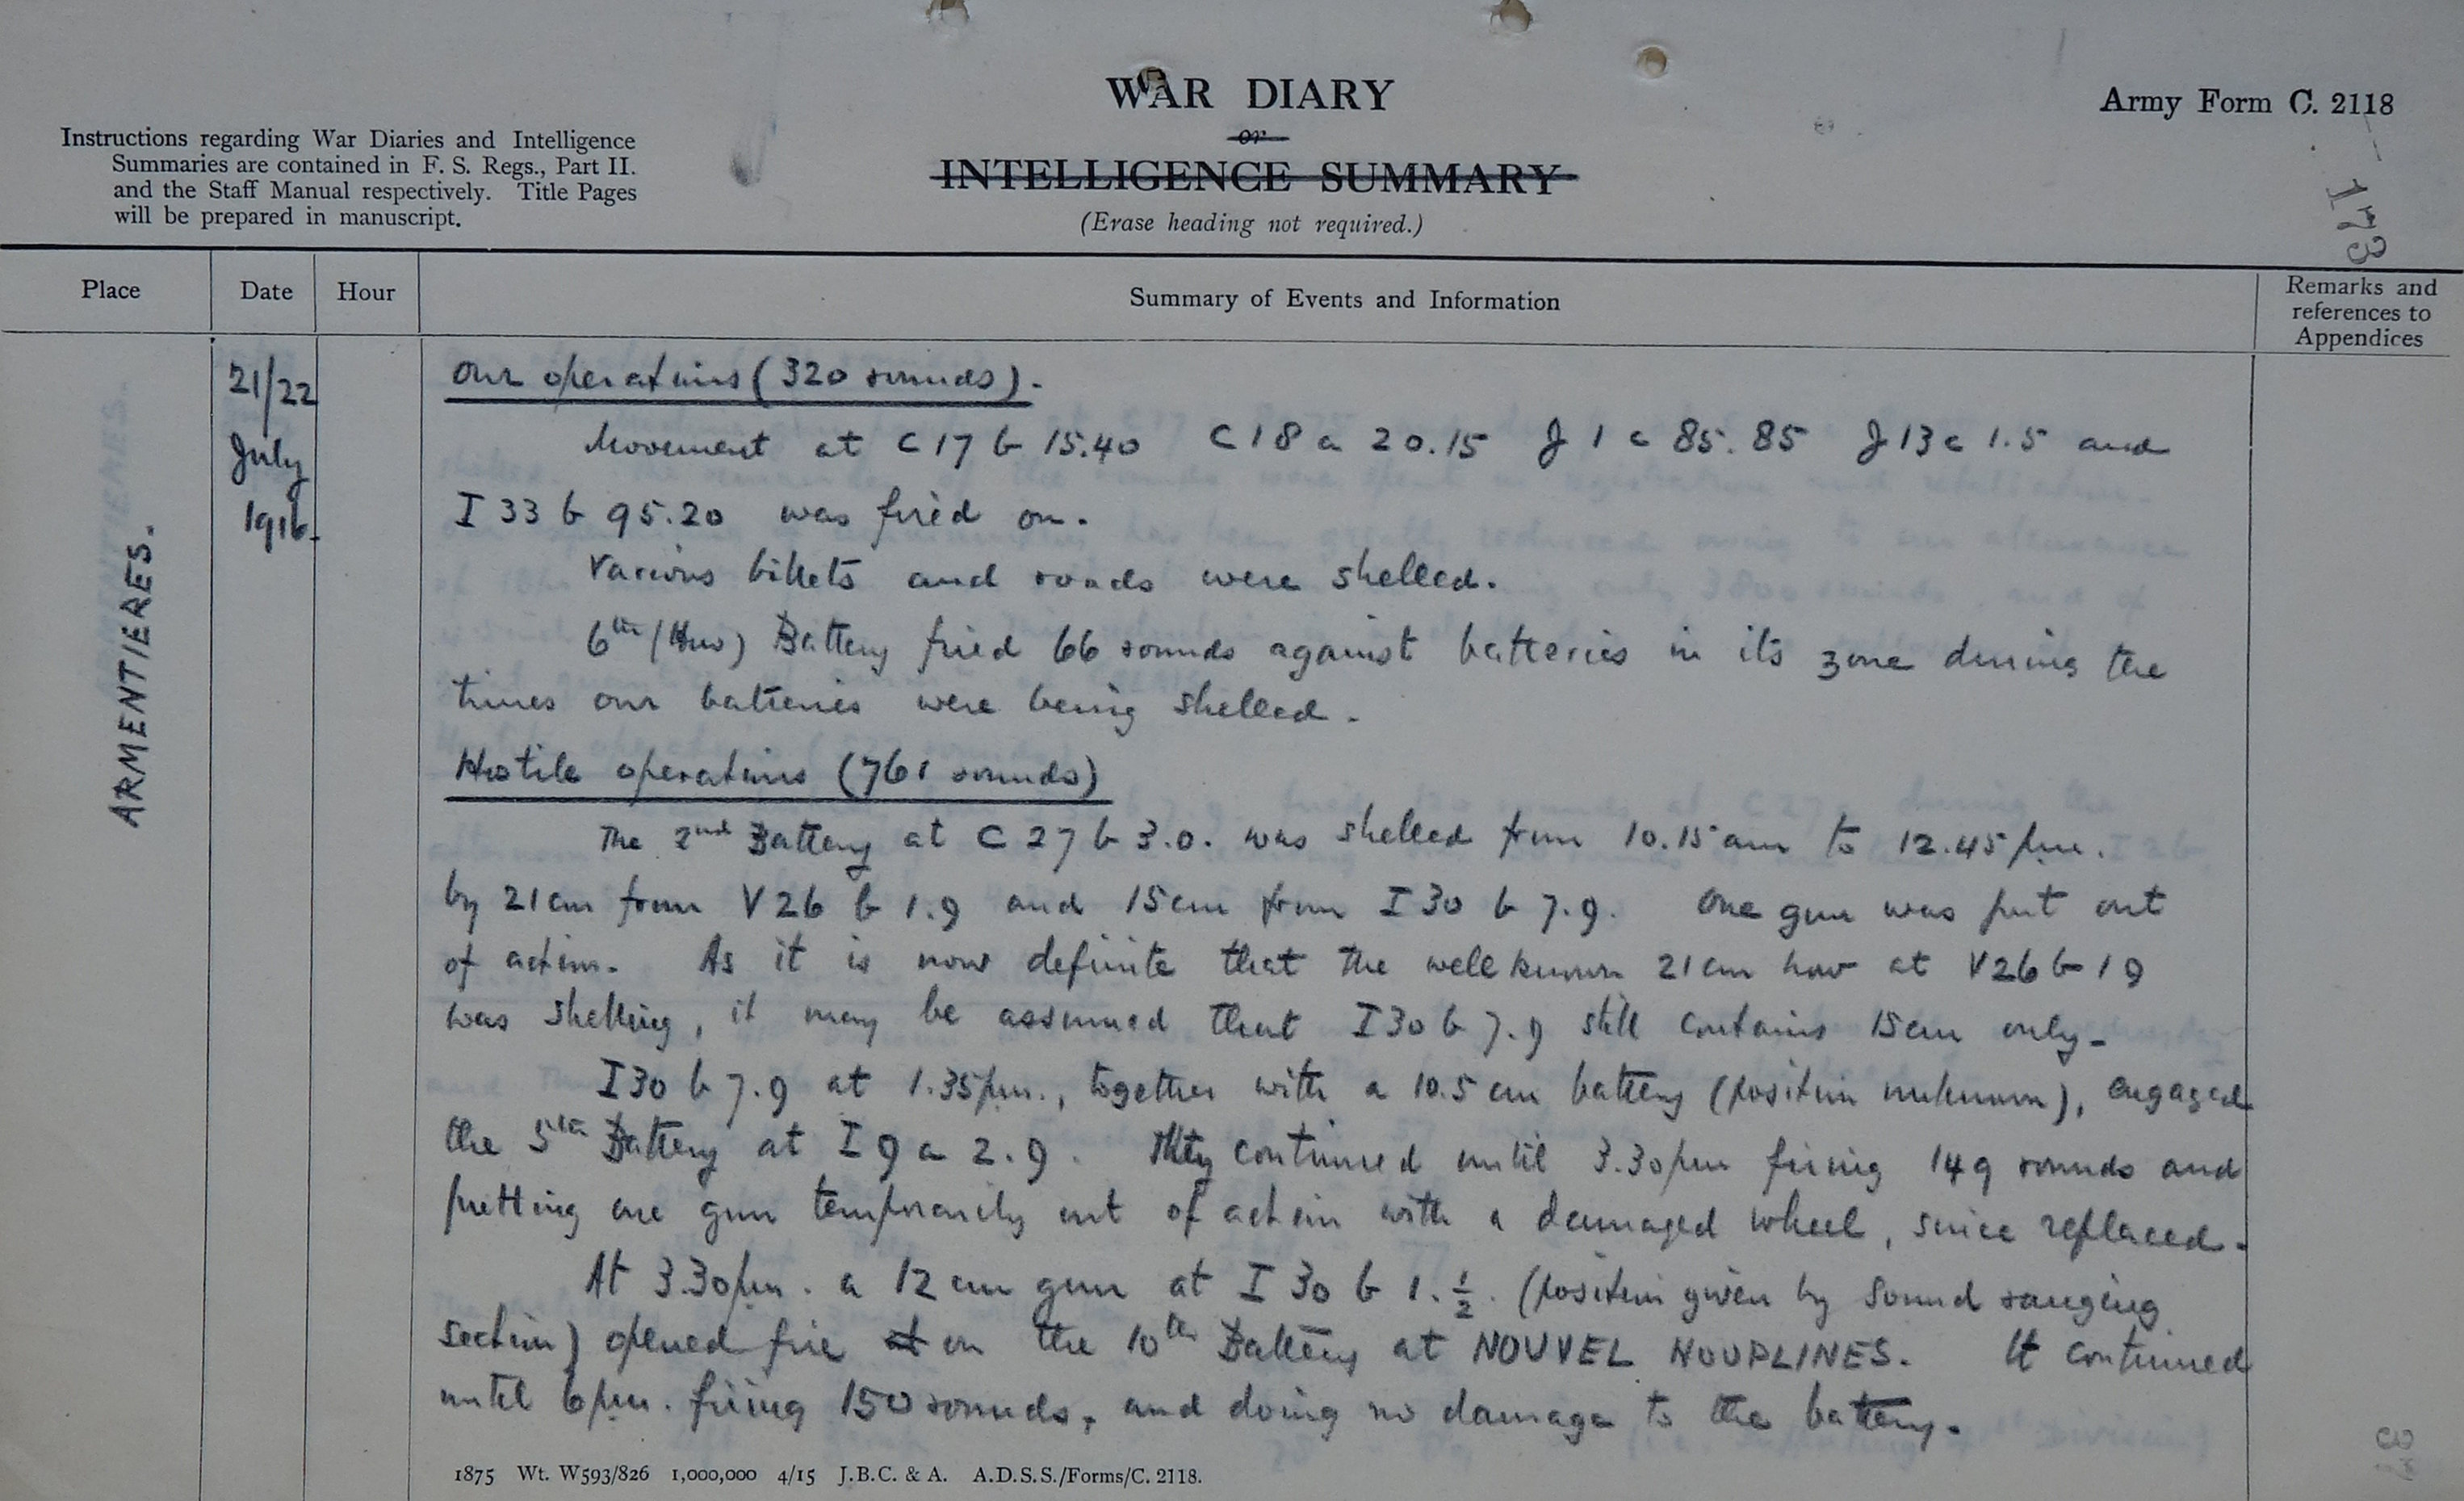 WAR DIARY
or
INTELLIGENCE SUMMARY
(Erase heading not required.)
Army Form C. 2118
173
Instructions regarding War Diaries and Intelligence
Summaries are contained in F. S. Regs., Part II.
and the Staff Manual respectively. Title Pages
will be prepared in manuscript.
Place
Date
Hour
Summary of Events and Information
Remarks and
references to
Appendices
ARMENTIERES.
21/22
July
1916.
Our operations (320 rounds).
Movement at C17 b 15.40 C18 a 20.15 J 1 c 85.85 J13c 1.5 and
I 33 b 95.20 was fired on.
Various billets and roads were shelled.
6th (How) Battery fired 66 rounds against batteries in its zone during the
times our batteries were being shelled.
Hostile operations (761 rounds)
The 2nd Battery at C 27 b 3.0. was shelled from 10.15am to 12.45pm.
by 21cm from V26 b 1.9 and 15cm from I 30 b 7.9. One gun was put out
of action. As it is now definite that the well known 21cm how at V26 b 19
was shelling, it may be assumed that I30 b 7.9 still contains 15cm only.
I30 b 7.9 at 1.35pm., together with a 10.5 cm battery (position unknown), engaged
the 5th Battery at I 9 a 2.9. They continued until 3.30pm firing 149 rounds and
putting one gun temporarily out of action with a damaged wheel, since replaced.
At 3.30pm. a 12 cm gun at I 30 b 1.½. (position given by Sound ranging
section) opened fire at on the 10th Battery at NOUVEL HOUPLINES. It continued
until 6pm. firing 150 rounds, and doing no damage to the battery.
1875 Wt. W593/826 1,000,000 4/15 J.B.C. & A. A.D.S.S./Forms/C. 2118.